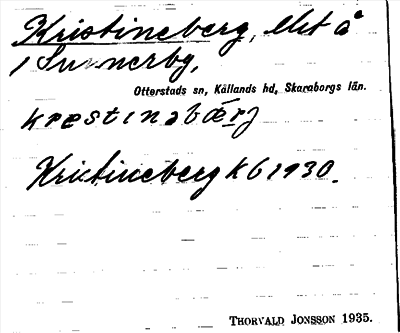 Kristineberg, lht å
1 Sunnerby,
Otterstads sn, Kållands hd, Skaraborgs län.
Kristineberg KB 1930.
THORVALD JONSSON 1935.